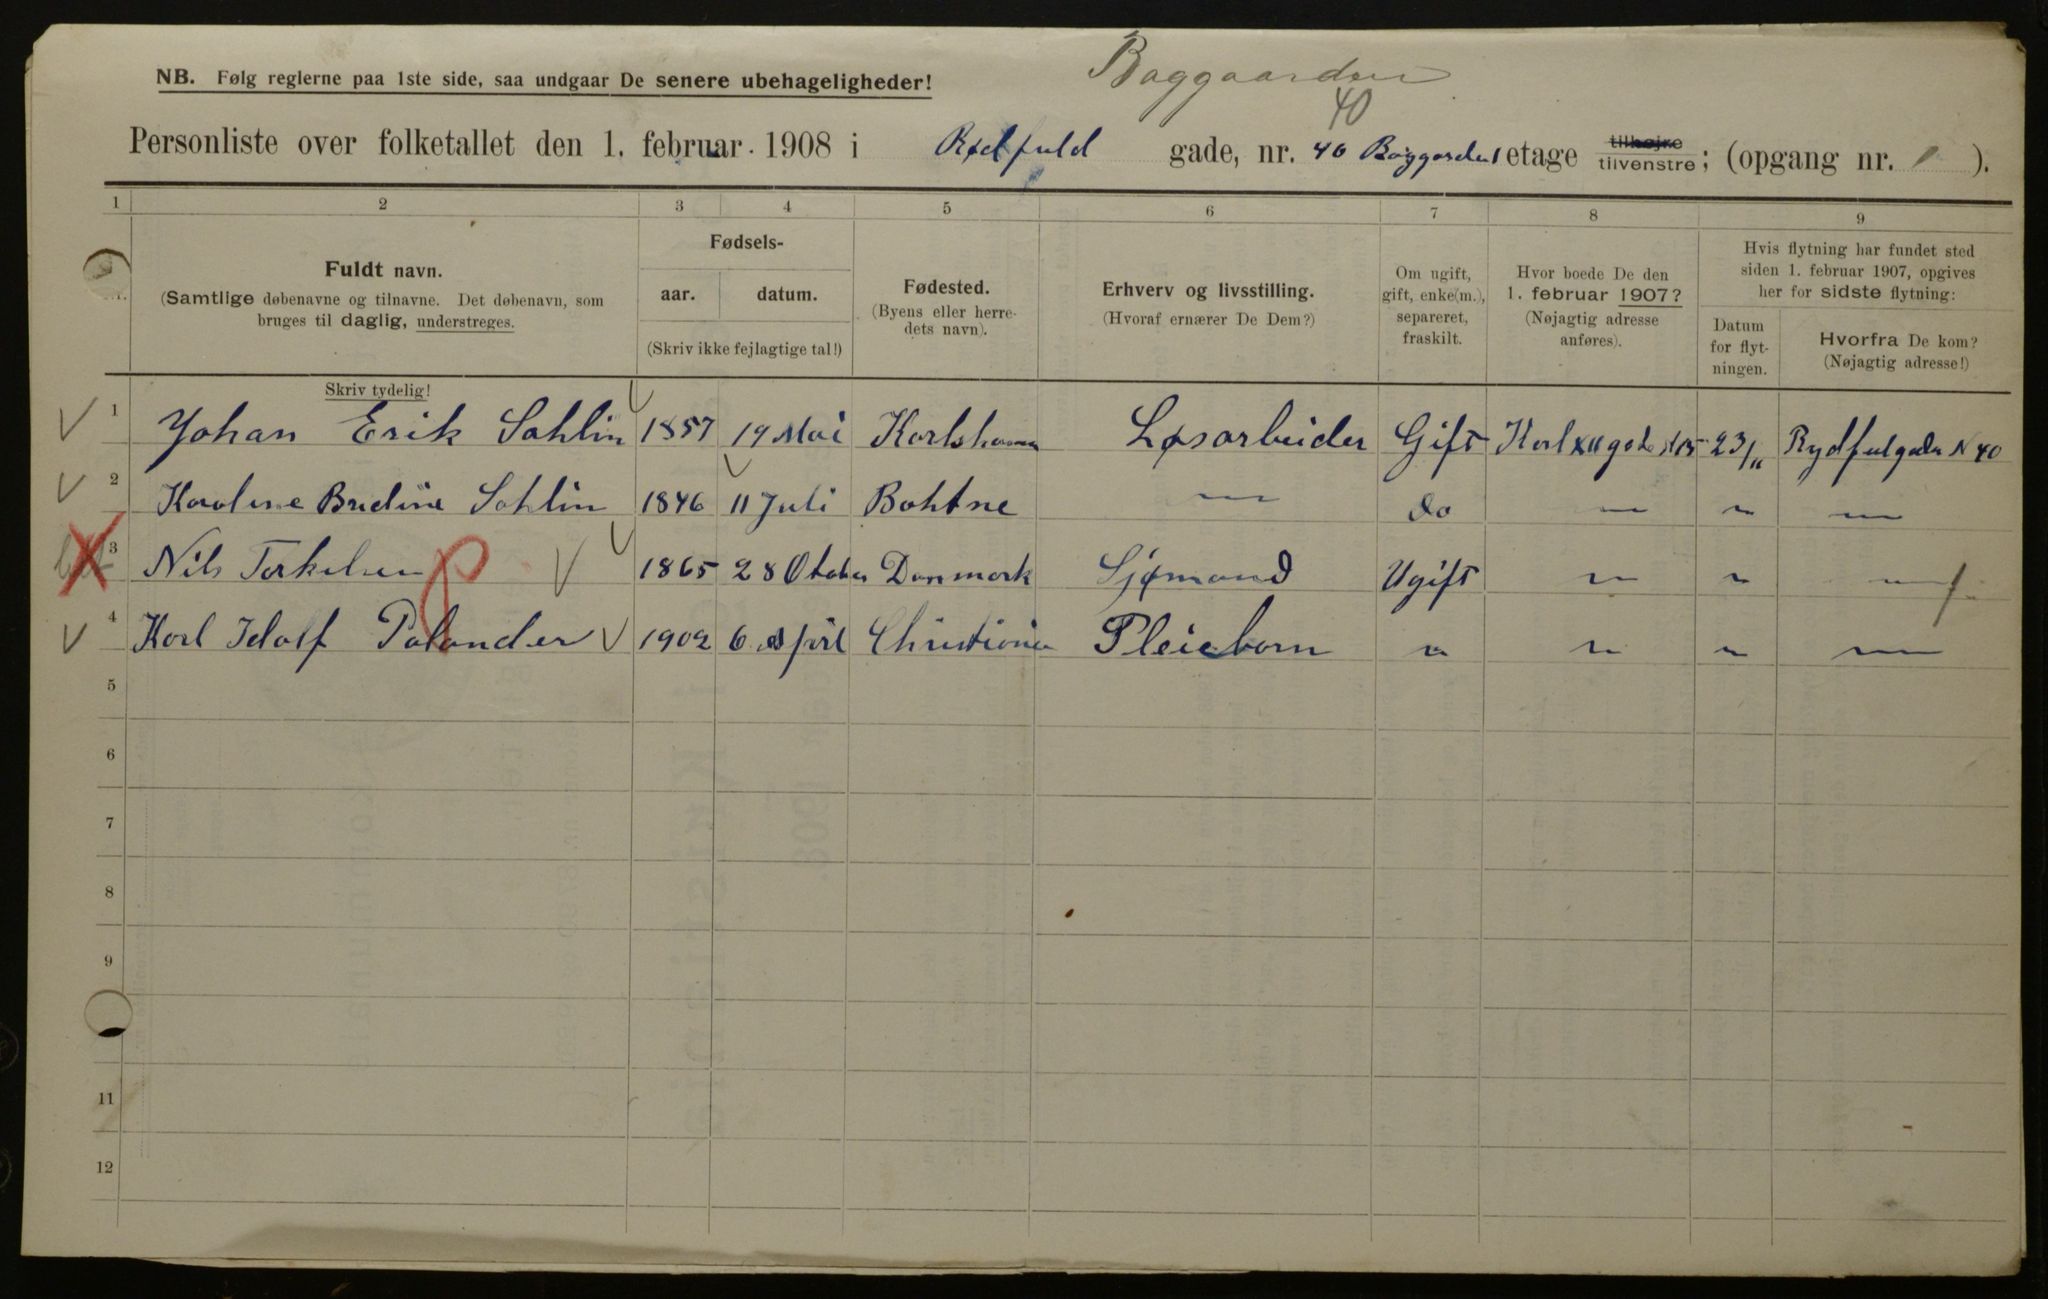 Baggaarden
40
NB. Følg reglerne paa 1ste side, saa undgaar De senere ubehageligheder!
Personliste over folketallet den 1. februar 1908 i Rødfuld gade, nr. 40 Baggarden 1 etage tilhøjre tilvenstre; (opgang nr. ).
1 2 3 4 5 6 7 8 9
Fuldt navn.
(Samtlige døbenavne og tilnavne. Det døbenavn, som
bruges til daglig, understreges.
Skriv tydelig!
Fødsels-
aar. datum.
(Skriv ikke fejlagtige tal!)
Fødested.
(Byens eller herre-
dets navn).
Erhverv og livsstilling.
(Hvoraf ernærer De Dem?)
Om ugift,
gift, enke(m.),
separeret,
fraskilt.
Hvor boede De den
1. februar 1907?
(Nøjagtig adresse
anføres).
Hvis flytning har fundet sted
siden 1. februar 1907, opgives
her for sidste flytning:
Datum
for flyt-
ningen.
Hvorfra De kom?
(Nøjagtig adresse!)
1 Johan Erik Sahlin 1857 19 Mai Karlshamn Løsarbeider Gift Karl XII gade N 15 23/11 Rydfulgaden N 40
2 Karoline Bredine Sahlin 1846 11 Juli Bohtne — do — " —
3 Nils Torkelsen 1865 28 Otober Danmark Sjømand Ugift " " "
4 Karl Idolf Palander 1902 6 April Christiania Pleiebarn " " " "
5
6
7
8
9
11
12